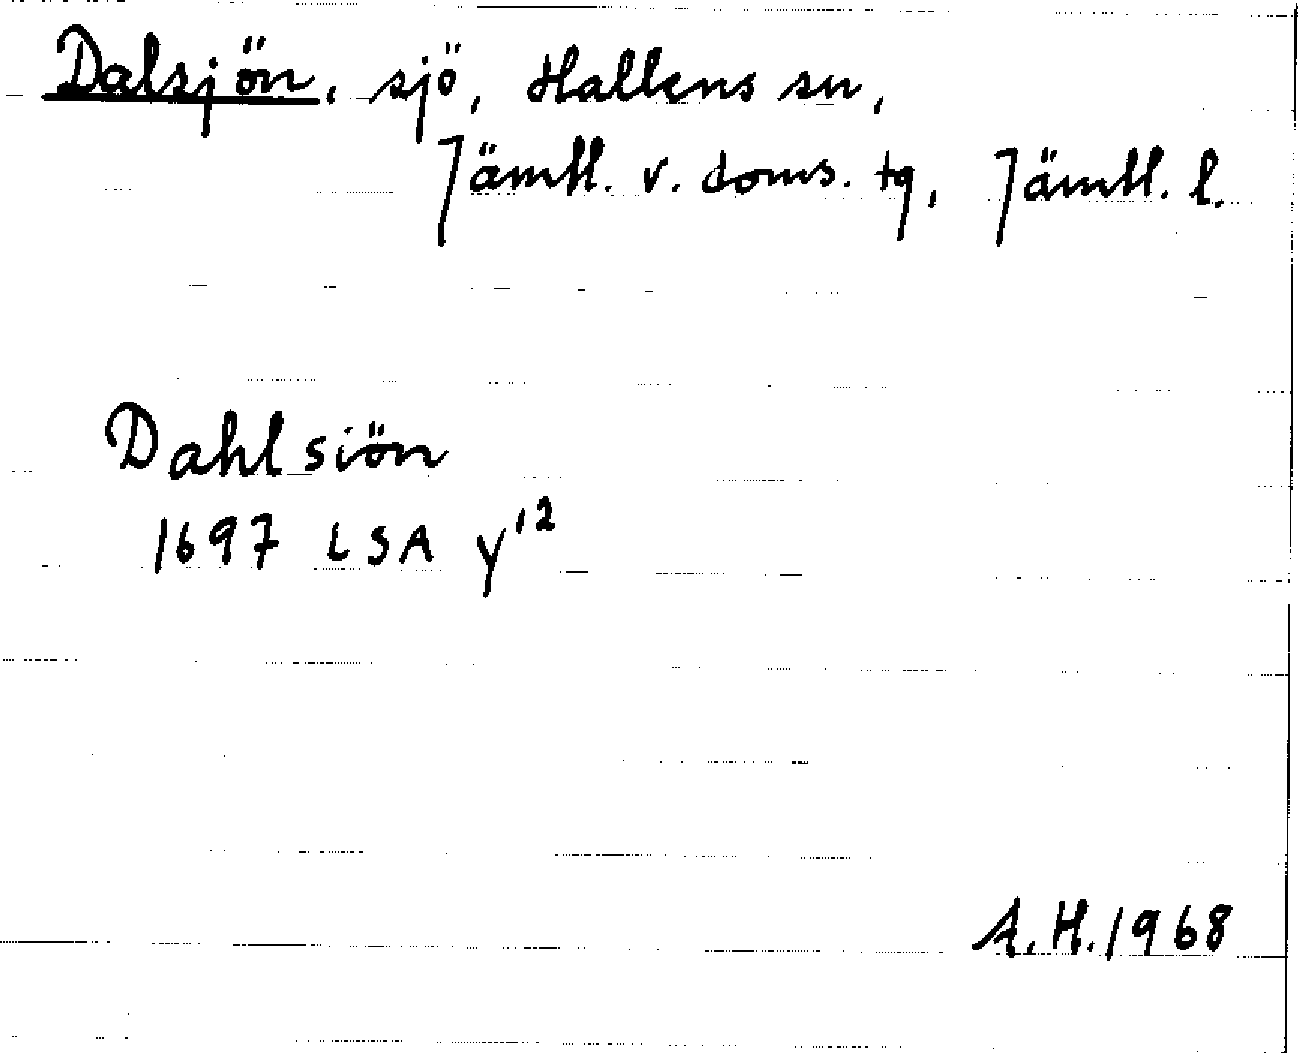 Dalsjön, sjö, Hallens sn,
Jämtl. v. doms. tg, Jämtl. l.
Dahlsiön
1697 LSA Y'2
A.H. 1968